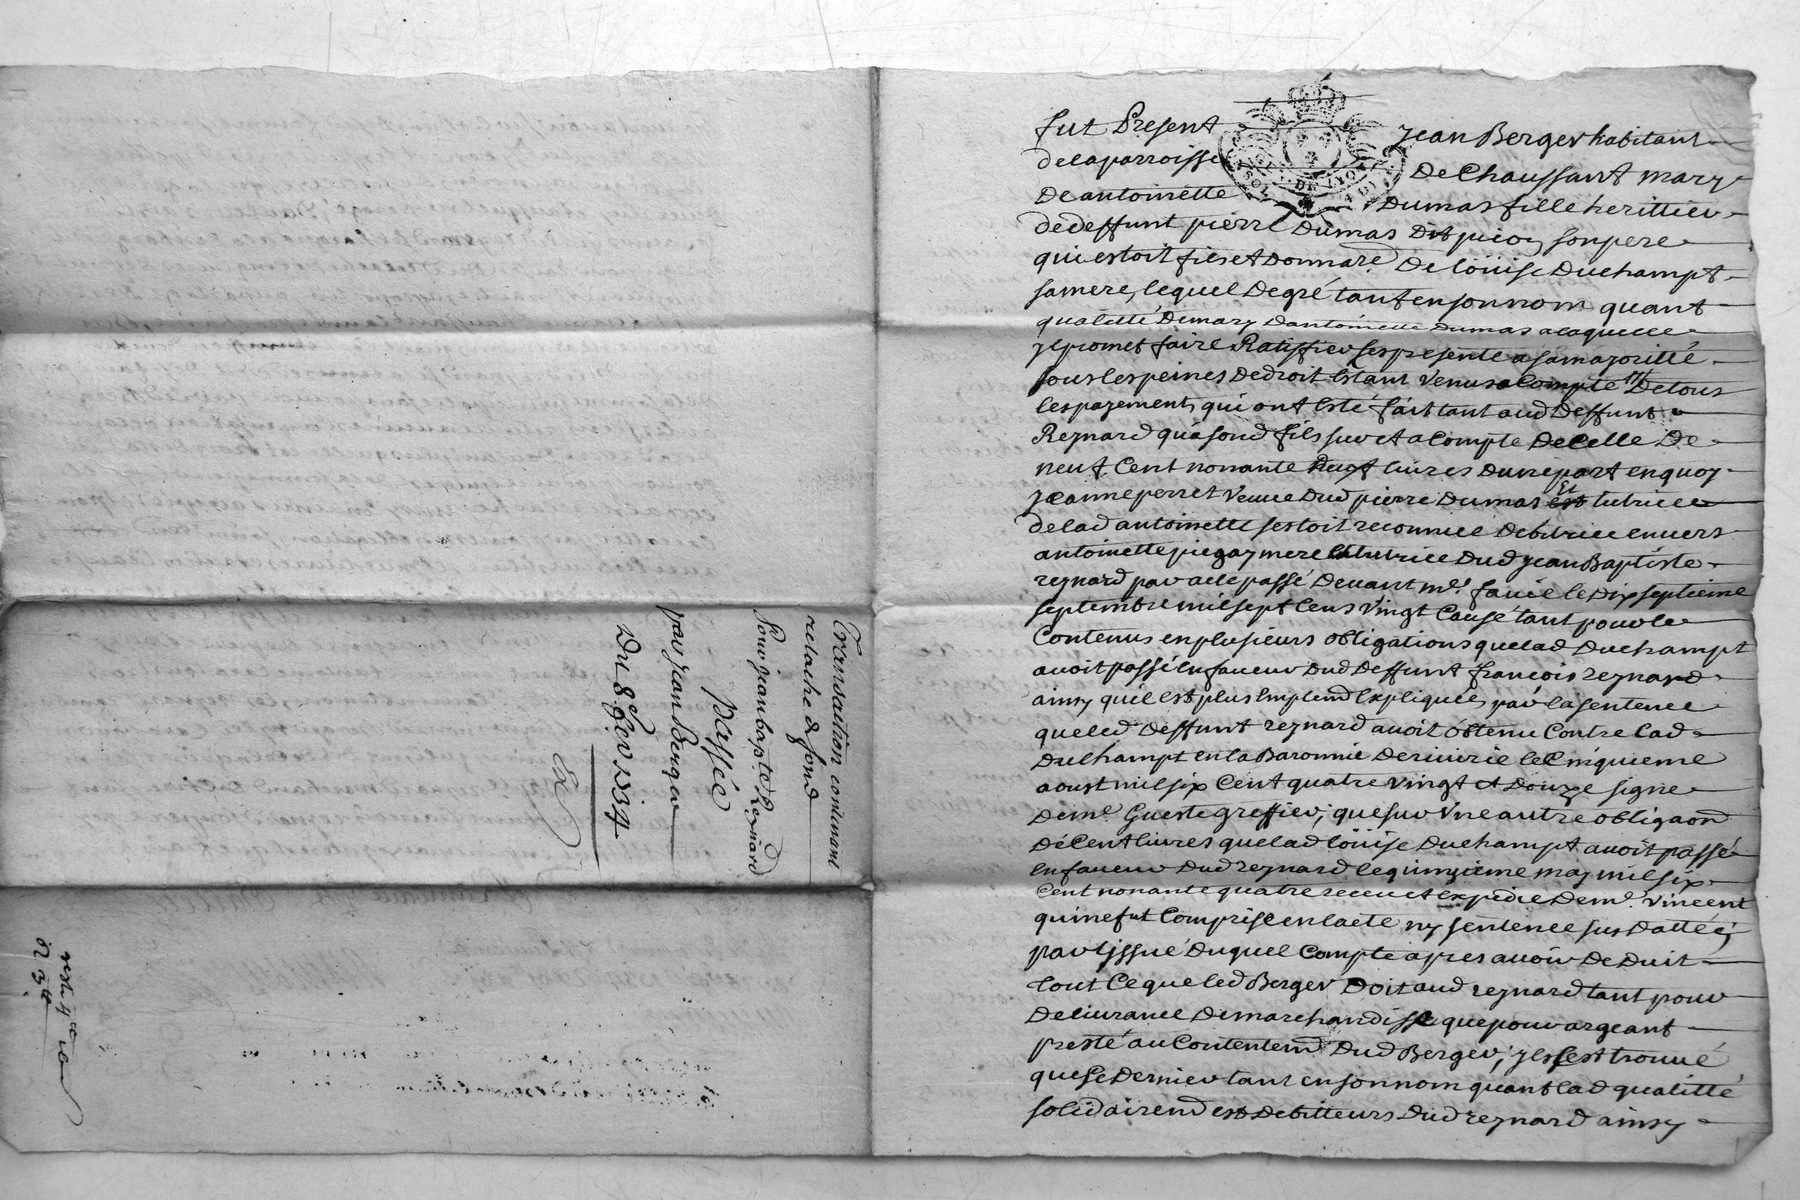 fut Present Jean Berger habitant
delaparroisse De Chaussant mary
De antoinette Dumas fille heritiere
dedeffunt pierre Dumas Dit picoy sonpere
qui estoit fils et Donnare De loüise Duchampt
samere, lequel Degré tant en son nom quant
qualitté Demary Dantoinette Dumas a laquelle
jl promet faire Ratiffier ses presente a samajoritté
sous les peines De droit Estant Venus a Compte De tous
les payements qui ont Esté fait tant aud Deffunt
Reynard qu'a sond fils sur et a Compte De Celle De
neuf Cent nonante neuf livres Dune part en quoy
Jeanne perret Veuve Dud pierre Dumas Et tutrice
de lad antoinette sestoit reconnue Debitrice envers
antoinette piegay mere Et tutrice Dud Jean Baptiste
reynard par acte passé Devant me favié le Dix septieme
septembre mil sept Cens Vingt Causé tant pour le
Contenus en plusieurs obligations que lad Duchampt
avoit passé En faveur Dud Deffunt françois reynard
ainsy quil est plus Emplemd Expliquée par la sentence
que led Deffunt reynard avoit obtenu Contre lad
Duchampt en la Baronnie De rivirie le Cinquieme
aoust mil six Cent quatre Vingt et Douze signe
De me Gueste greffier, que sur Vne autre obligaon
De Cent livres que lad loüise Duchampt avoit passé
En faveur Dud reynard le quinzieme may mil six
Cent nonante quatre receu et Expedie De me Vincent
qui ne fut Comprise en lacte ny sentence sus Datté
par lissue Duquel Compte apres avoir De Duit
tout Ce que led Berger Doit aud reynard tant pour
Delivrance De marchandisse que pour argeant
presté au Contentemd Dud Berger, jl sest trouvé
que se Dernier tant en son nom quant lad qualitté
solidairemd est Debitteurs Dud reynard ainsy
Transaction contenant
relache de fond
Pour jean bapte Reynard
Passée
par jean Berger
Du 8e fev 1734
DE LYON